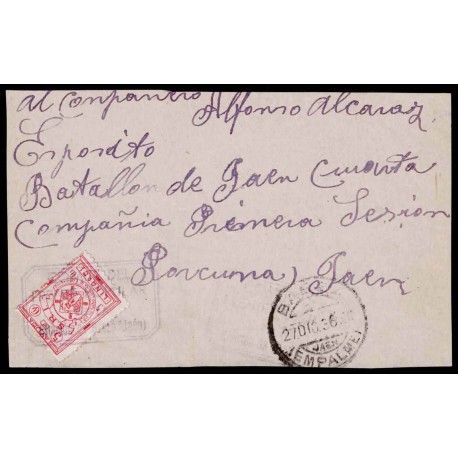 al Conpañero Alfonso Alcaraz
Esposito
Batallon de Jaen Cuarta
Compañia Primera Sesion
Porcuna, Jaen
27 DIC. 36
JAEN
(EMPALME)